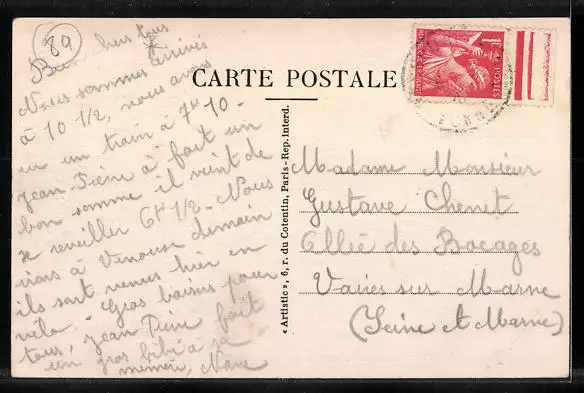 89
Bien chers tous
Nous sommes arrivés
à 10 1/2, nous avons
eu un train à 7h 10 -
Jean Pierre a fait un
bon somme il vient de
se réveiller 6h 1/2 - Nous
irons à Venouse demain
ils sont venus hier en
vélo - Gros baisers pour
tous, Jean Pierre fait
un gros bibi à sa
mémère,
CARTE POSTALE
« Artistic », 6, r. du Colentin, Paris - Rep. interd.
1F
POSTES
YONNE
Madame Monsieur
Gustave Chenet
Allée des Bocages
Vaires sur Marne
(Seine et Marne)